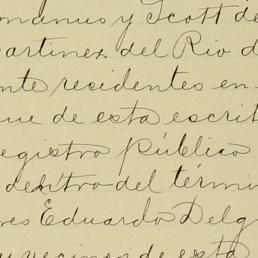 manus y Scott de
artinez del Rio d
nte residentes en-
ue de esta escrit
egistro público
dentro del términ
res Eduardo Delg
y vecinos de esta